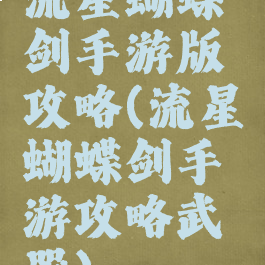 流星蝴蝶
剑手游版
攻略(流星
蝴蝶剑手
游攻略武
器)